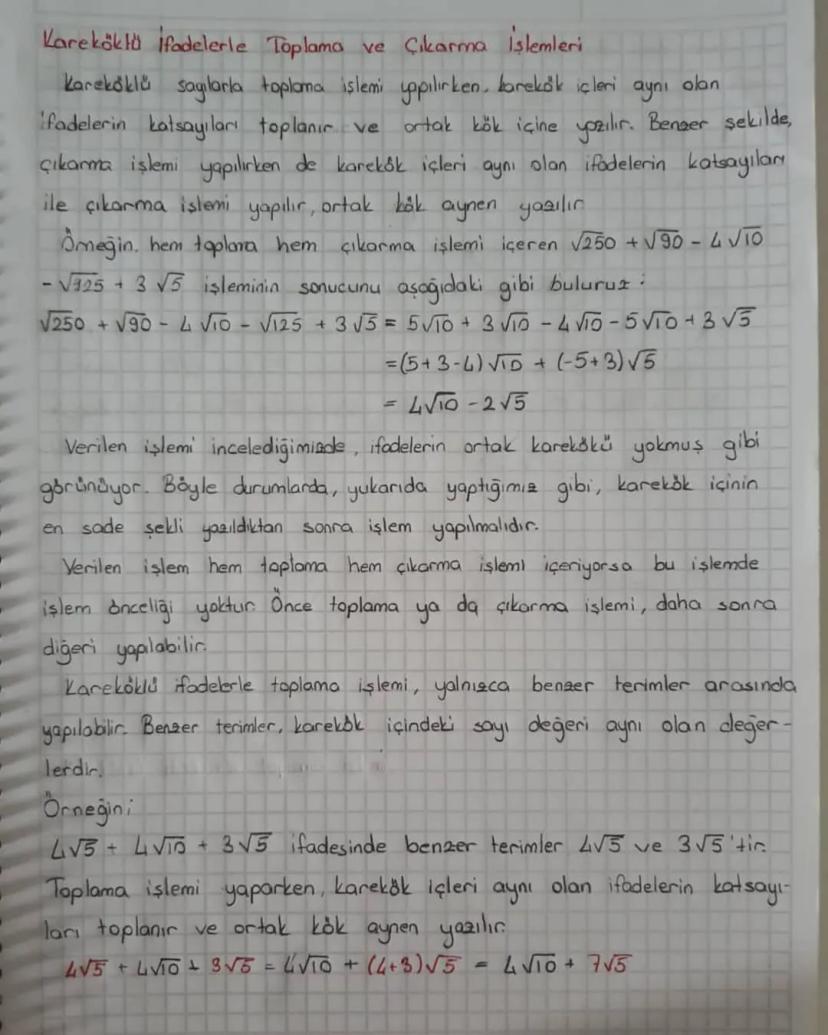 Kareköklü İfadelerle Toplama ve Çıkarma İşlemleri
Kareköklü sayılarla toplama işlemi yapılırken, karekök içleri aynı olan
ifadelerin katsayıları toplanır ve ortak kök içine yazılır. Benzer şekilde,
çıkarma işlemi yapılırken de karekök içleri aynı olan ifadelerin katsayıları
ile çıkarma işlemi yapılır, ortak kök aynen yazılır
Örneğin, hem toplama hem çıkarma işlemi içeren √250 + √90 - 4√10
- √125 + 3√5 işleminin sonucunu aşağıdaki gibi buluruz:
√250 + √90 - 4√10 - √125 + 3√5 = 5√10 + 3√10 - 4√10 - 5√10 + 3√5
= (5+3-4)√10 + (-5+3)√5
= 4√10 - 2√5
Verilen işlemi incelediğimizde, ifadelerin ortak karekökü yokmuş gibi
görünüyor. Böyle durumlarda, yukarıda yaptığımız gibi, karekök içinin
en sade şekli yazıldıktan sonra işlem yapılmalıdır.
Verilen işlem hem toplama hem çıkarma işlemi içeriyorsa bu işlemde
işlem önceliği yoktur. Önce toplama ya da çıkarma işlemi, daha sonra
diğeri yapılabilir.
Kareköklü ifadelerle toplama işlemi, yalnızca benzer terimler arasında
yapılabilir. Benzer terimler, karekök içindeki sayı değeri aynı olan değer-
lerdir.
Örneğin;
4√5 + 4√10 + 3√5 ifadesinde benzer terimler 4√5 ve 3√5'tir.
Toplama işlemi yaparken, karekök içleri aynı olan ifadelerin katsayı-
ları toplanır ve ortak kök aynen yazılır.
4√5 + 4√10 + 3√5 = 4√10 + (4+3)√5 = 4√10 + 7√5